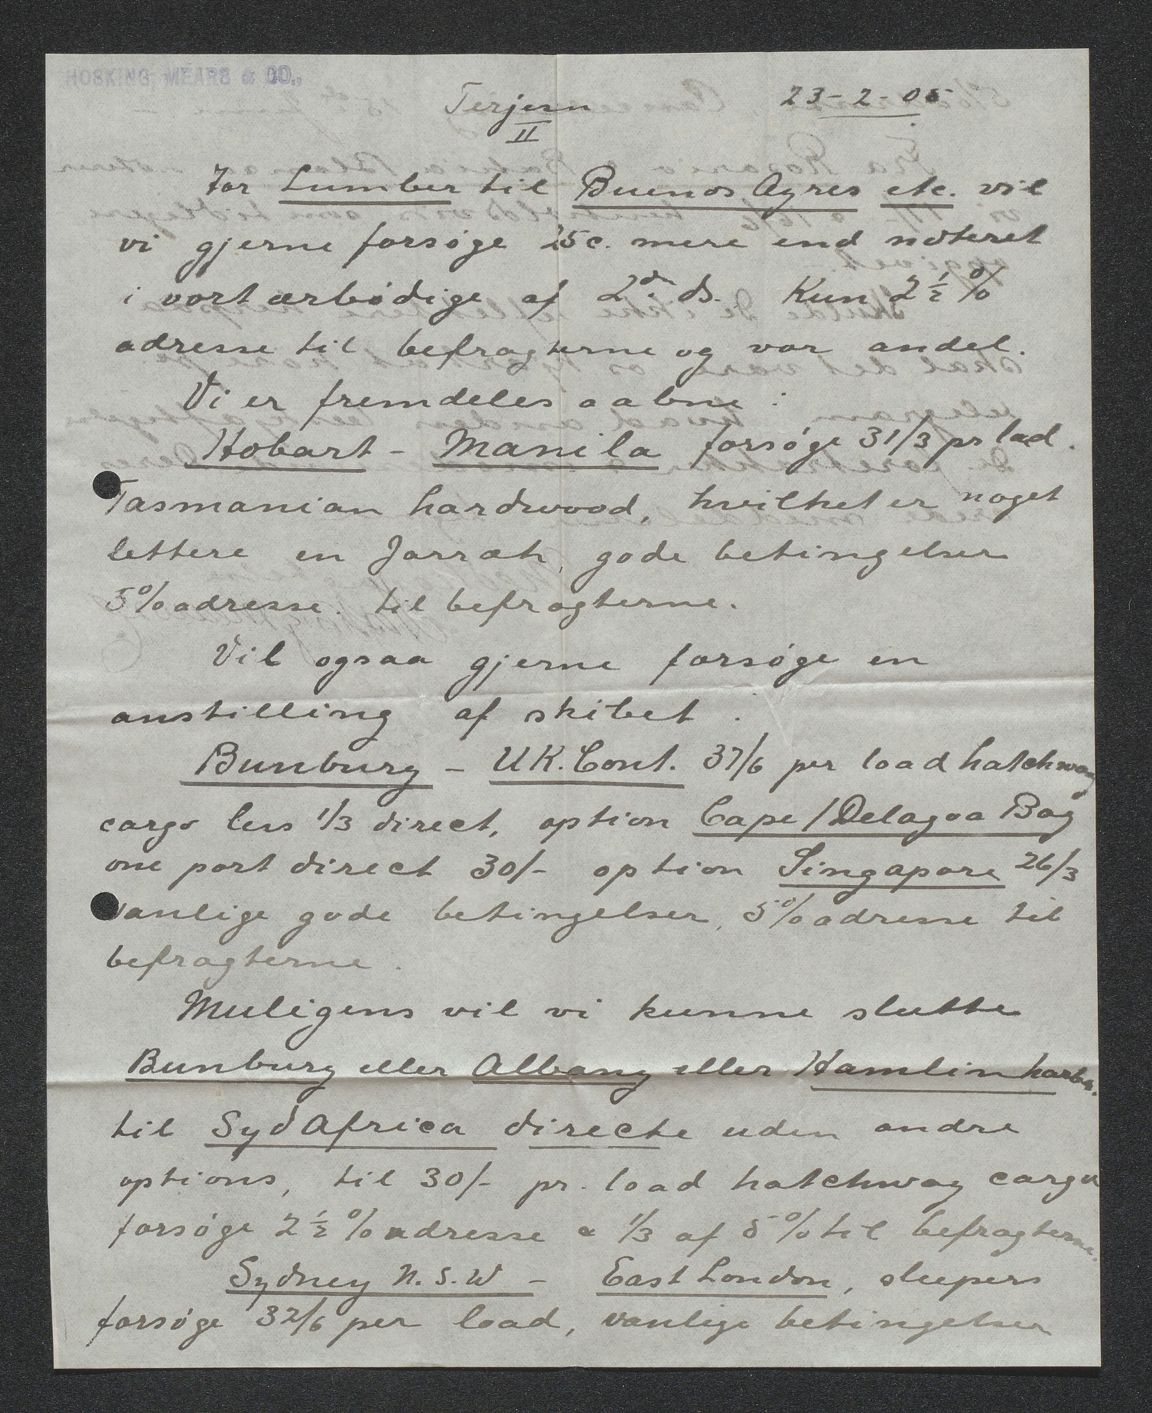 HOSKING, MEARS & CO.,
Terjesen 23-2-05
II
For Lumber til Buenos Ayres etc. vil
vi gjerne forsøge 25c. mere end noteret
i vort ærbødige af 2den ds. Kun 2½%
adresse til befragterne og vor andel.
Vi er fremdeles aabne:
Hobart - Manila forsøge 31/3 pr lad.
Tasmanian hardwood, hvilket er noget
lettere en Jarrah, gode betingelser
5% adresse til befragterne.
Vil ogsaa gjerne forsøge en
anstilling af skibet.
Bunbury - UK. Cont. 37/6 per load hatchway
cargo less 1/3 direct, option Cape/Delagoa Bay
one port direct 30/- option Singapore 26/3
vanlige gode betingelser, 5% adresse til
befragterne.
Muligens vil vi kunne slutte
Bunbury eller Albany eller Hamlin harbr.
til Syd Africa directe uden andre
options, til 30/- pr. load hatchway cargo
forsøge 2½% adresse a 1/3 af 5% til befragterne.
Sydney N.S.W - East London, sleepers
forsøge 32/6 per load, vanlige betingelser